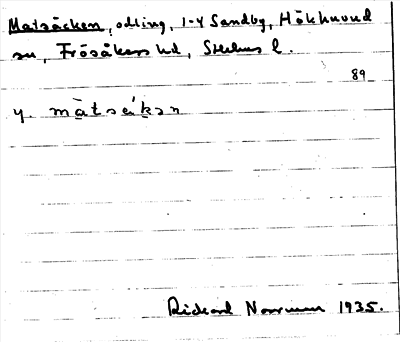 Matsäcken, odling, 1-4 Sandby, Hökhuvud
sn, Frösåkers hd, Sthlms l.
89
y. màtsäkən
Rickard Norrman 1935.